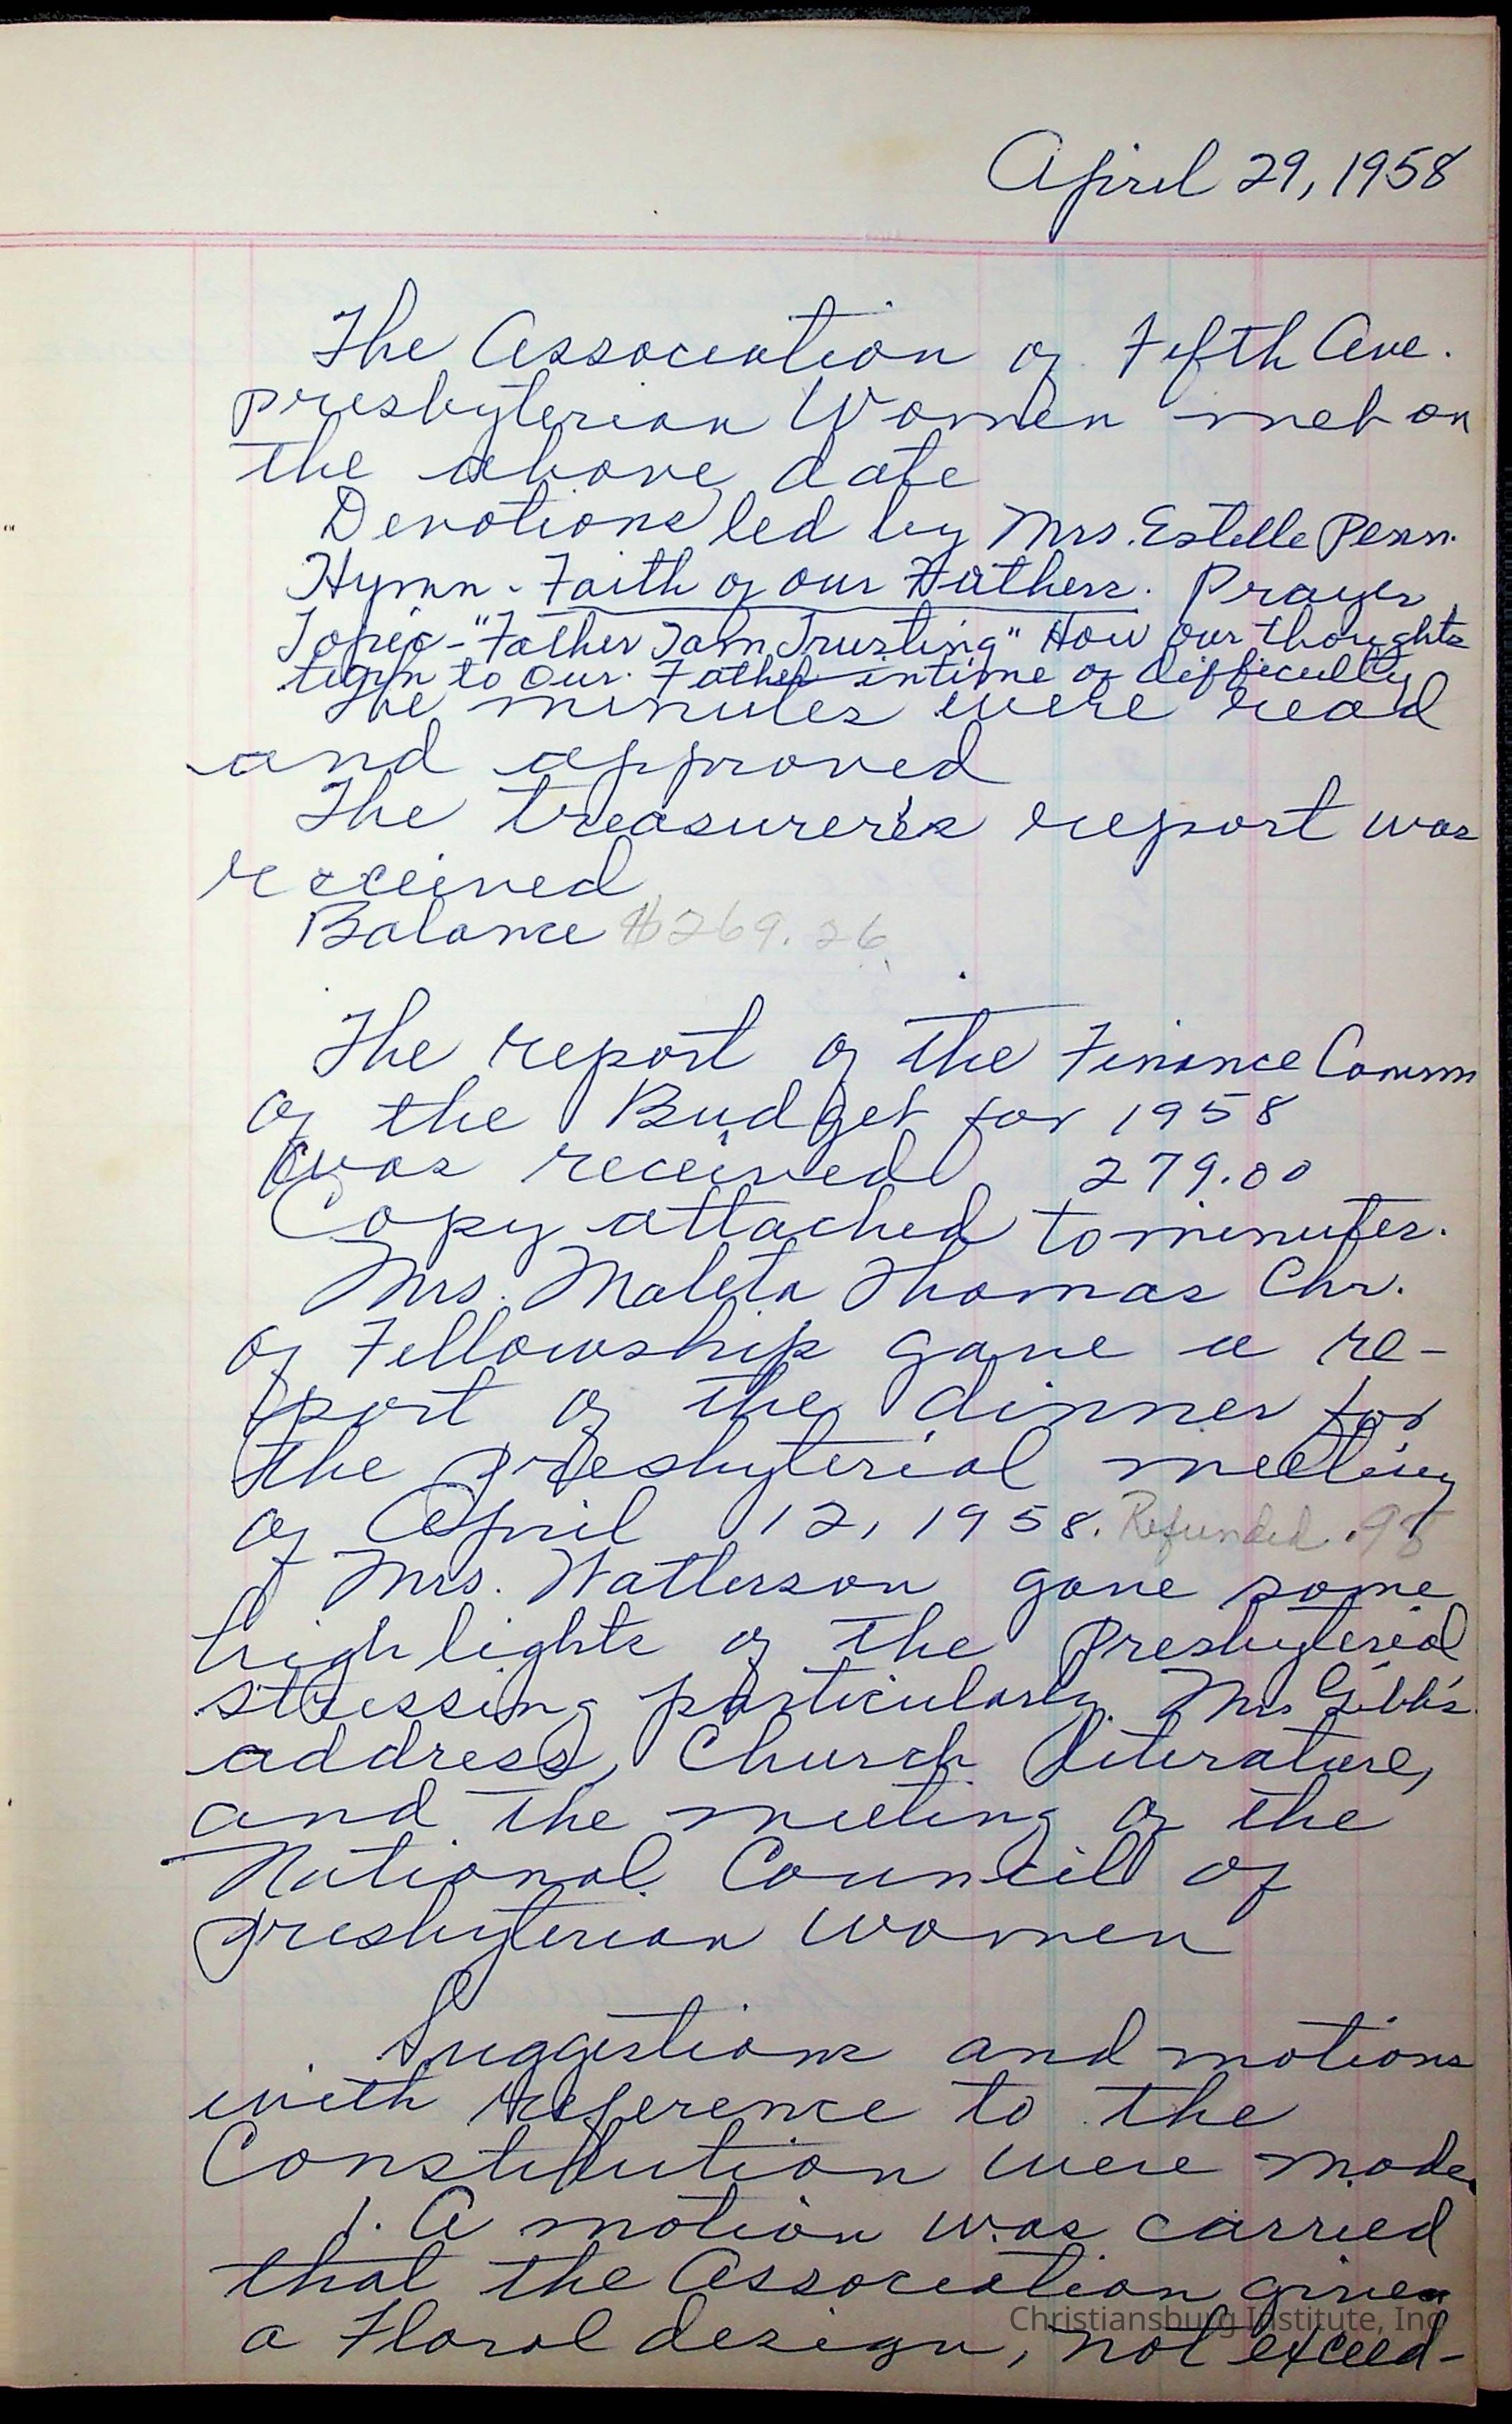 April 29, 1958
The Association of Fifth Ave.
Presbyterian Women met on
the above date
Devotions led by Mrs. Estelle Penn.
Hymn - Faith of our Fathers. Prayer
Topic - "Father I am Trusting" How our thoughts
turn to Our Father in time of difficulty
The minutes were read
and approved
The treasurer's report was
received
Balance $269.26
The report of the Finance Comm
of the Budget for 1958
was received 279.00
Copy attached to minutes.
Mrs. Maleta Thomas Chr.
of Fellowship gave a re-
port of the dinner for
the presbyterial meeting
of April 12, 1958. Refunded .98
Mrs. Watterson gave some
highlights of the Presbyterial
stressing particularly Mrs Gibb's
address, Church literature,
and the meeting of the
National Council of
Presbyterian Women
Suggestions and motions
with reference to the
Constitution were made.
1. A motion was carried
that the Association give
a Floral design, not exceed-
Christiansburg Institute, Inc